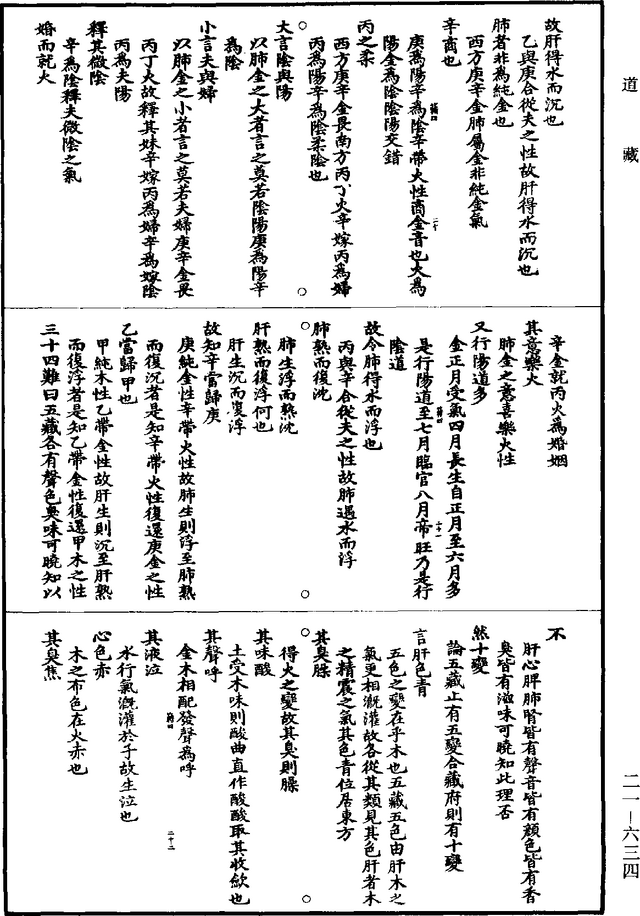 道藏
故肝得水而沉也
乙與庚合從夫之性故肝得水而沉也
肺者非為純金也
西方庚辛金肺屬金非純金氣
辛商也
庚為陽辛為陰辛帶火性商金音也大為
陽金為陰陰陽交錯
丙之柔
西方庚辛金畏南方丙丁火辛嫁丙為婦
丙為陽辛為陰柔陰也
大言陰與陽
以肺金之大者言之莫若陰陽庚為陽辛
為陰
小言夫與婦
以肺金之小者言之莫若夫婦庚辛金畏
丙丁火故釋其妹辛嫁丙為婦辛為嫁陰
丙為夫陽
釋其微陰
辛為陰釋夫微陰之氣
婚而就火
辛金就丙火為婚姻
其意樂火
肺金之意喜樂火性
又行陽道多
金正月受氣四月長生自正月至六月多
是行陽道至七月臨官八月帝旺乃是行
陰道
故令肺得水而浮也
丙與辛合從夫之性故肺遇水而浮
肺熟而復沈
肺生浮而熟沈
肝熟而復浮何也
肝生沉而復浮
故知辛當歸庚
庚純金性辛帶火性故肺生則浮至肺熟
而復沉者是知辛帶火性復還庚金之性
乙當歸甲也
甲純木性乙帶金性故肝生則沉至肝熟
而復浮者是知乙帶金性復還甲木之性
三十四難曰五藏各有聲色臭味可曉知以
不
肝心脾肺腎皆有聲音皆有顏色皆有香
臭皆有滋味可曉知此理否
然十變
論五藏止有五變合藏府則有十變
言肝色青
五色之變在乎木也五藏五色由肝木之
氣更相溉灌故各從其類見其色肝者木
之精震之氣其色青位居東方
其臭臊
得火之變故其臭則臊
其味酸
土受木味則酸曲直作酸酸取其收歛也
其聲呼
金木相配發聲為呼
其液泣
水行氣溉灌於子故生泣也
心色赤
木之布色在火赤也
其臭焦
二一—六三四